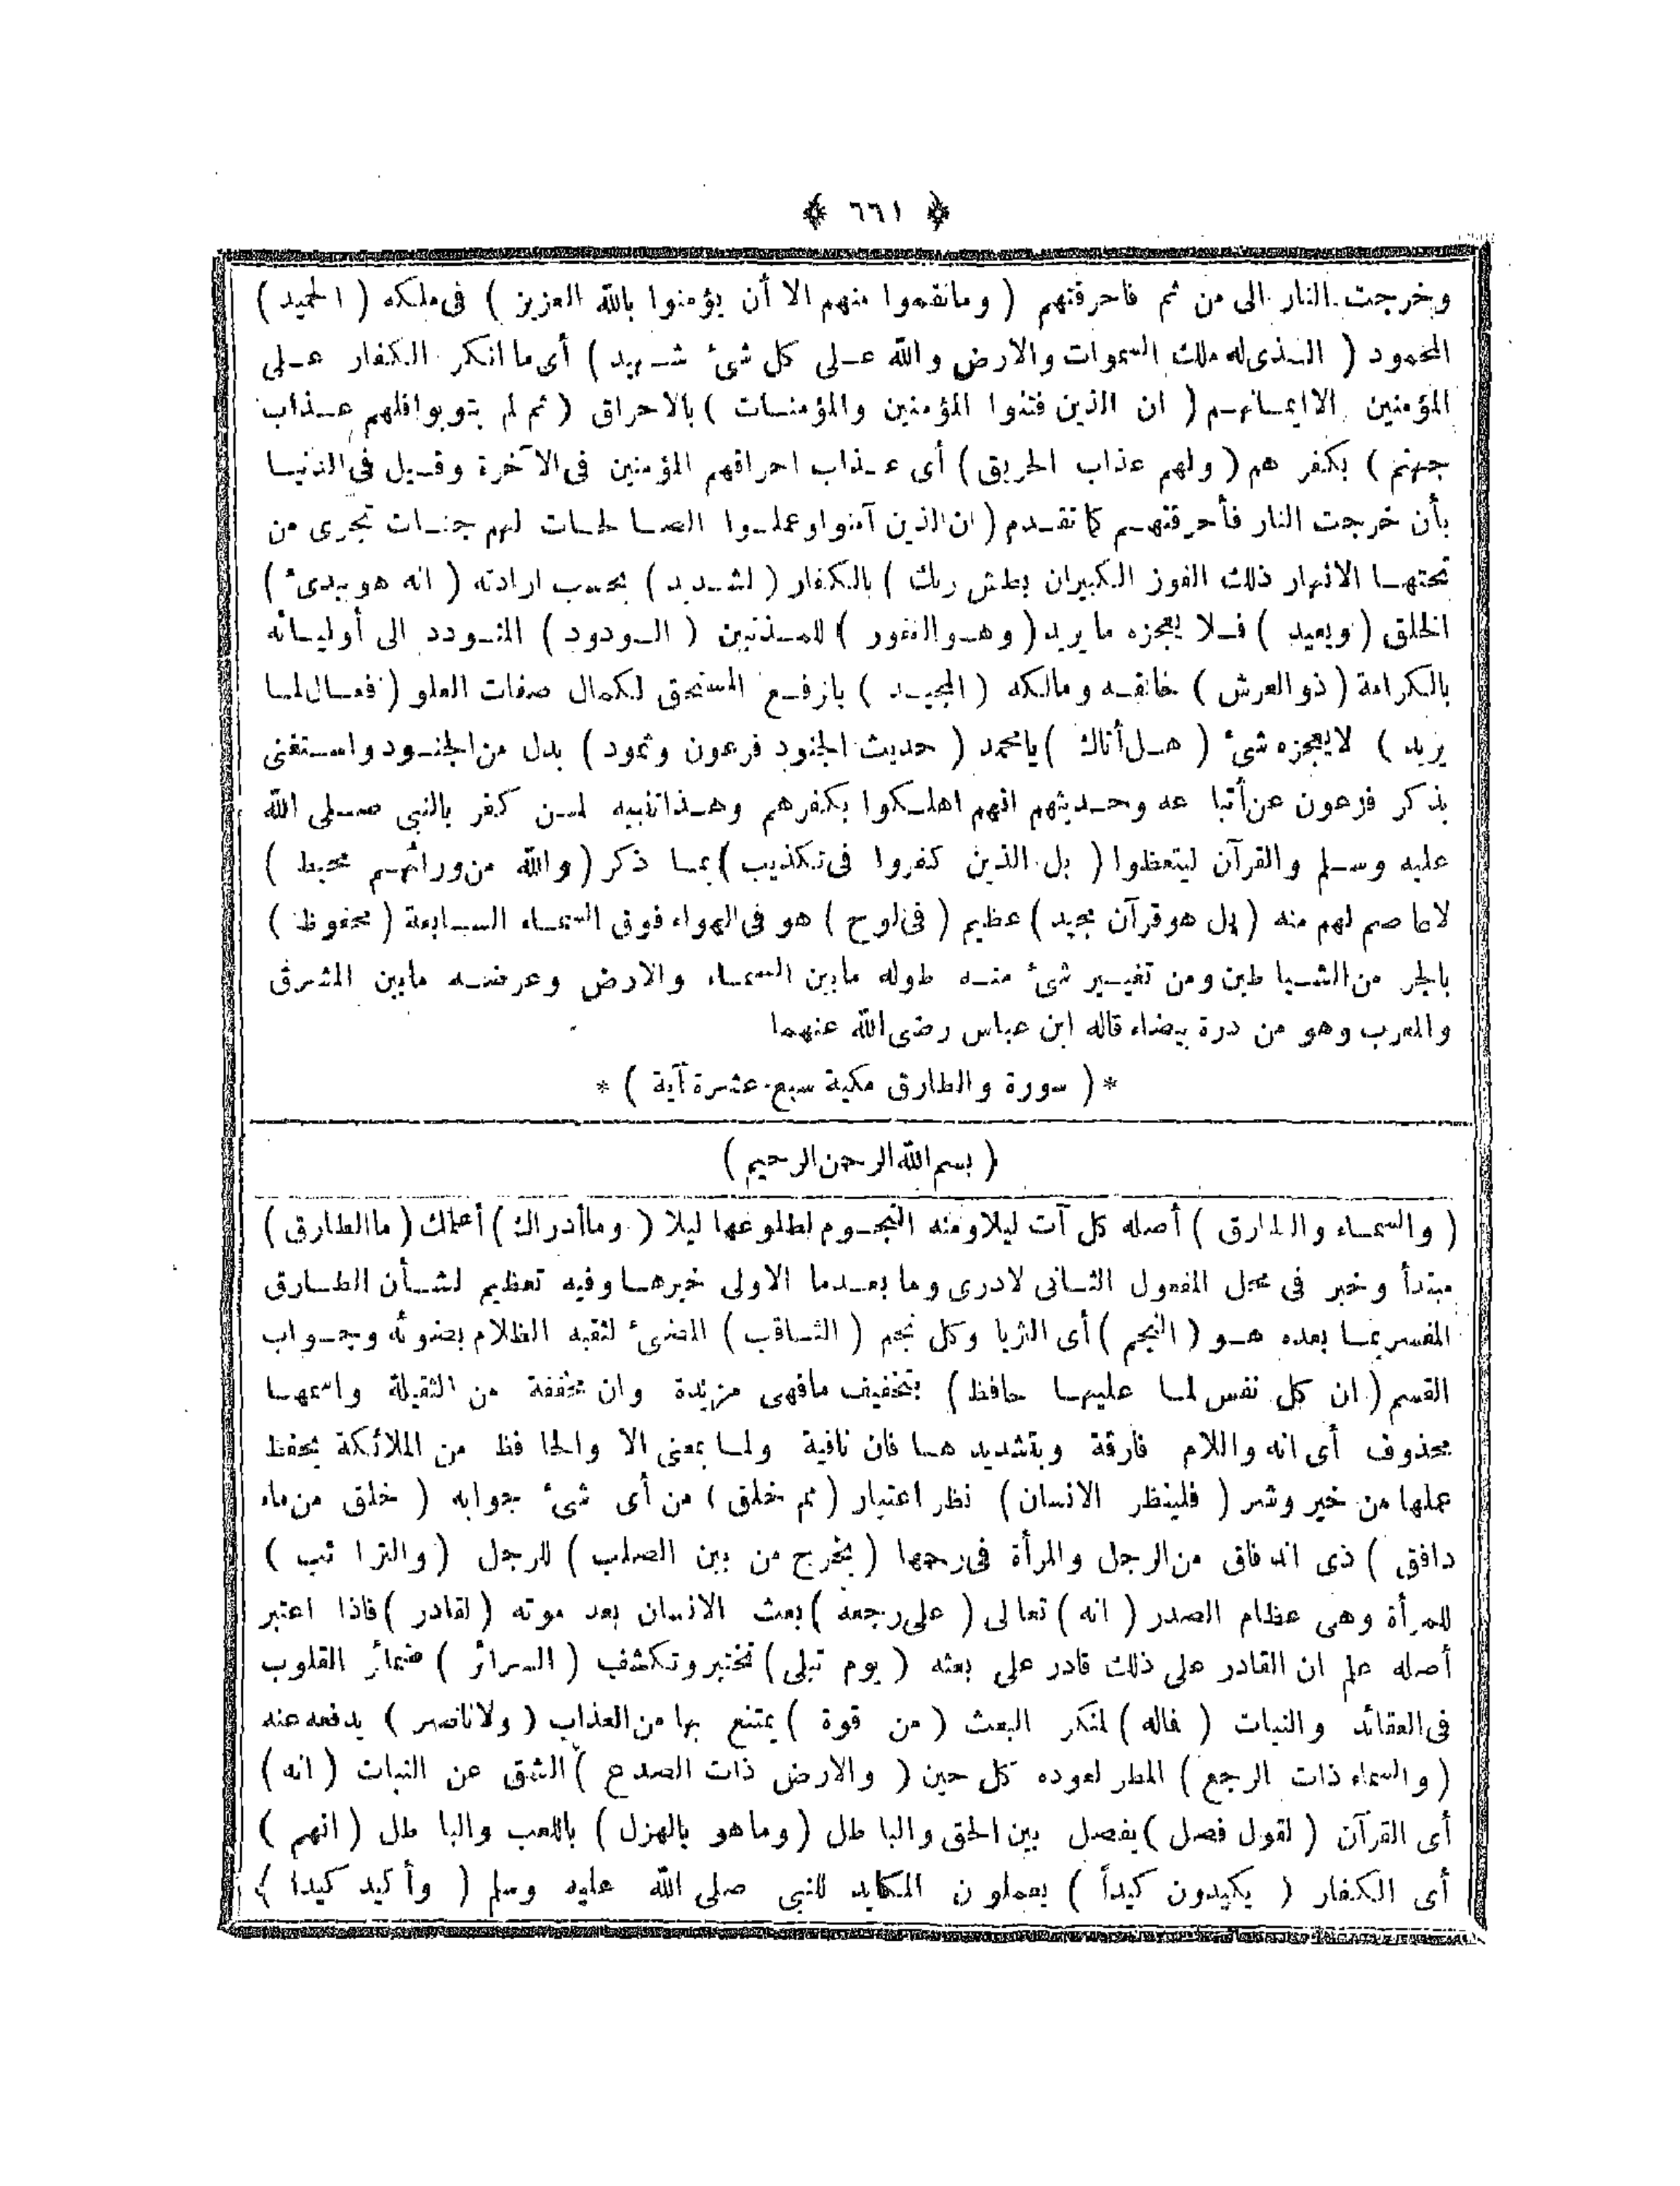 ﴿ ٦٦١ ﴾
وخرجت النار الى من ثم فاحرقتهم ( ومانقموا منهم الا أن يؤمنوا بالله العزيز ) فى ملكه ( الحميد )
المحمود ( الـذى له ملك السموات والارض والله عـلى كل شئ شـهيد ) أى ما انكر الكفار عـلى
المؤمنين الا ايمـانهـم ( ان الذين فتنوا المؤمنين والمؤمنـات ) بالاحراق ( ثم لم يتوبوا فلهم عـذاب
جهنم ) بكفر هم ( ولهم عذاب الحريق ) أى عـذاب احراقهم المؤمنين فى الآخرة وقـيل فى الدنيـا
بأن خرجت النار فأحرقتهـم كما تقـدم ( ان الذين آمنوا وعملـوا الصـا لحـات لهم جنـات تجرى من
تحتهـا الانهار ذلك الفوز الكبير ان بطش ربك ) بالكفار ( لشـديد ) بحسب ارادته ( انه هو يبدئ )
الخلق ( ويعيد ) فـلا يعجزه ما يريد ( وهـو الغفور ) للمـذنبين ( الـودود ) المتـودد الى أوليـائه
بالكرامة ( ذو العرش ) خالقـه ومالكه ( المجيـد ) بالرفـع المستحق لكمال صفات العلو ( فعـال لمـا
يريد ) لا يعجزه شئ ( هـل أتاك ) يا محمد ( حديث الجنود فرعون وثمود ) بدل من الجنـود واسـتغنى
بذكر فرعون عن أتبا عه وحـديثهم انهم اهلـكوا بكفرهم وهـذا تنبيه لمـن كفر بالنبي صـلى الله
عليه وسـلم والقرآن ليتعظوا ( بل الذين كفروا فى تكذيب ) بمـا ذكر ( والله من ورائهـم محيط )
لا عا صم لهم منه ( بل هو قرآن مجيد ) عظيم ( فى لوح ) هو فى الهواء فوق السمـاء السـابعة ( محفوظ )
بالجر من الشـيا طين ومن تغيـير شئ منـه طوله ما بين السمـاء والارض وعرضـه ما بين المشرق
والمغرب وهو من درة بيضاء قاله ابن عباس رضى الله عنهما
* ( سورة والطارق مكية سبع عشرة آية ) *
( بسم الله الرحمن الرحيم )
( والسمـاء والطارق ) أصله كل آت ليلا ومنه النجـوم لطلوعها ليلا ( وما أدراك ) أعلمك ( ما الطارق )
مبتدأ وخبر فى محل المفعول الثـانى لادرى وما بعـدما الاولى خبرهـا وفيه تعظيم لشـأن الطـارق
المفسر بمـا بعده هـو ( النجم ) أى الثريا وكل نجم ( الثـاقب ) المضئ لثقبه الظلام بضوئه وجـواب
القسم ( ان كل نفس لمـا عليهـا حافظ ) بتخفيف ما فهى مزيدة وان مخففة من الثقيلة واسمهـا
محذوف أى انه واللام فارقة وبتشديد هـا فان نافية ولمـا بمعنى الا والحا فظ من الملائكة يحفظ
عملها من خير وشر ( فلينظر الانسان ) نظر اعتبار ( مم خلق ) من أى شئ جوابه ( خلق من ماء
دافق ) ذى اندفاق من الرجل والمرأة فى رحمها ( يخرج من بين الصلب ) للرجل ( والترا ئب )
للمرأة وهى عظام الصدر ( انه ) تعالى ( على رجعه ) بعث الانسان بعد موته ( لقادر ) فاذا اعتبر
أصله علم ان القادر على ذلك قادر على بعثه ( يوم تبلى ) تختبر وتكشف ( السرائر ) ضمائر القلوب
فى العقائد والنيات ( فماله ) لمنكر البعث ( من قوة ) يمتنع بها من العذاب ( ولا ناصر ) يدفعه عنه
( والسماء ذات الرجع ) المطر لعوده كل حين ( والارض ذات الصدع ) الشق عن النبات ( انه )
أى القرآن ( لقول فصل ) يفصل بين الحق والبا طل ( وما هو بالهزل ) باللعب والبا طل ( انهم )
أى الكفار ( يكيدون كيداً ) يعملون المكايد للنبي صلى الله عليه وسلم ( وأكيد كيدا )